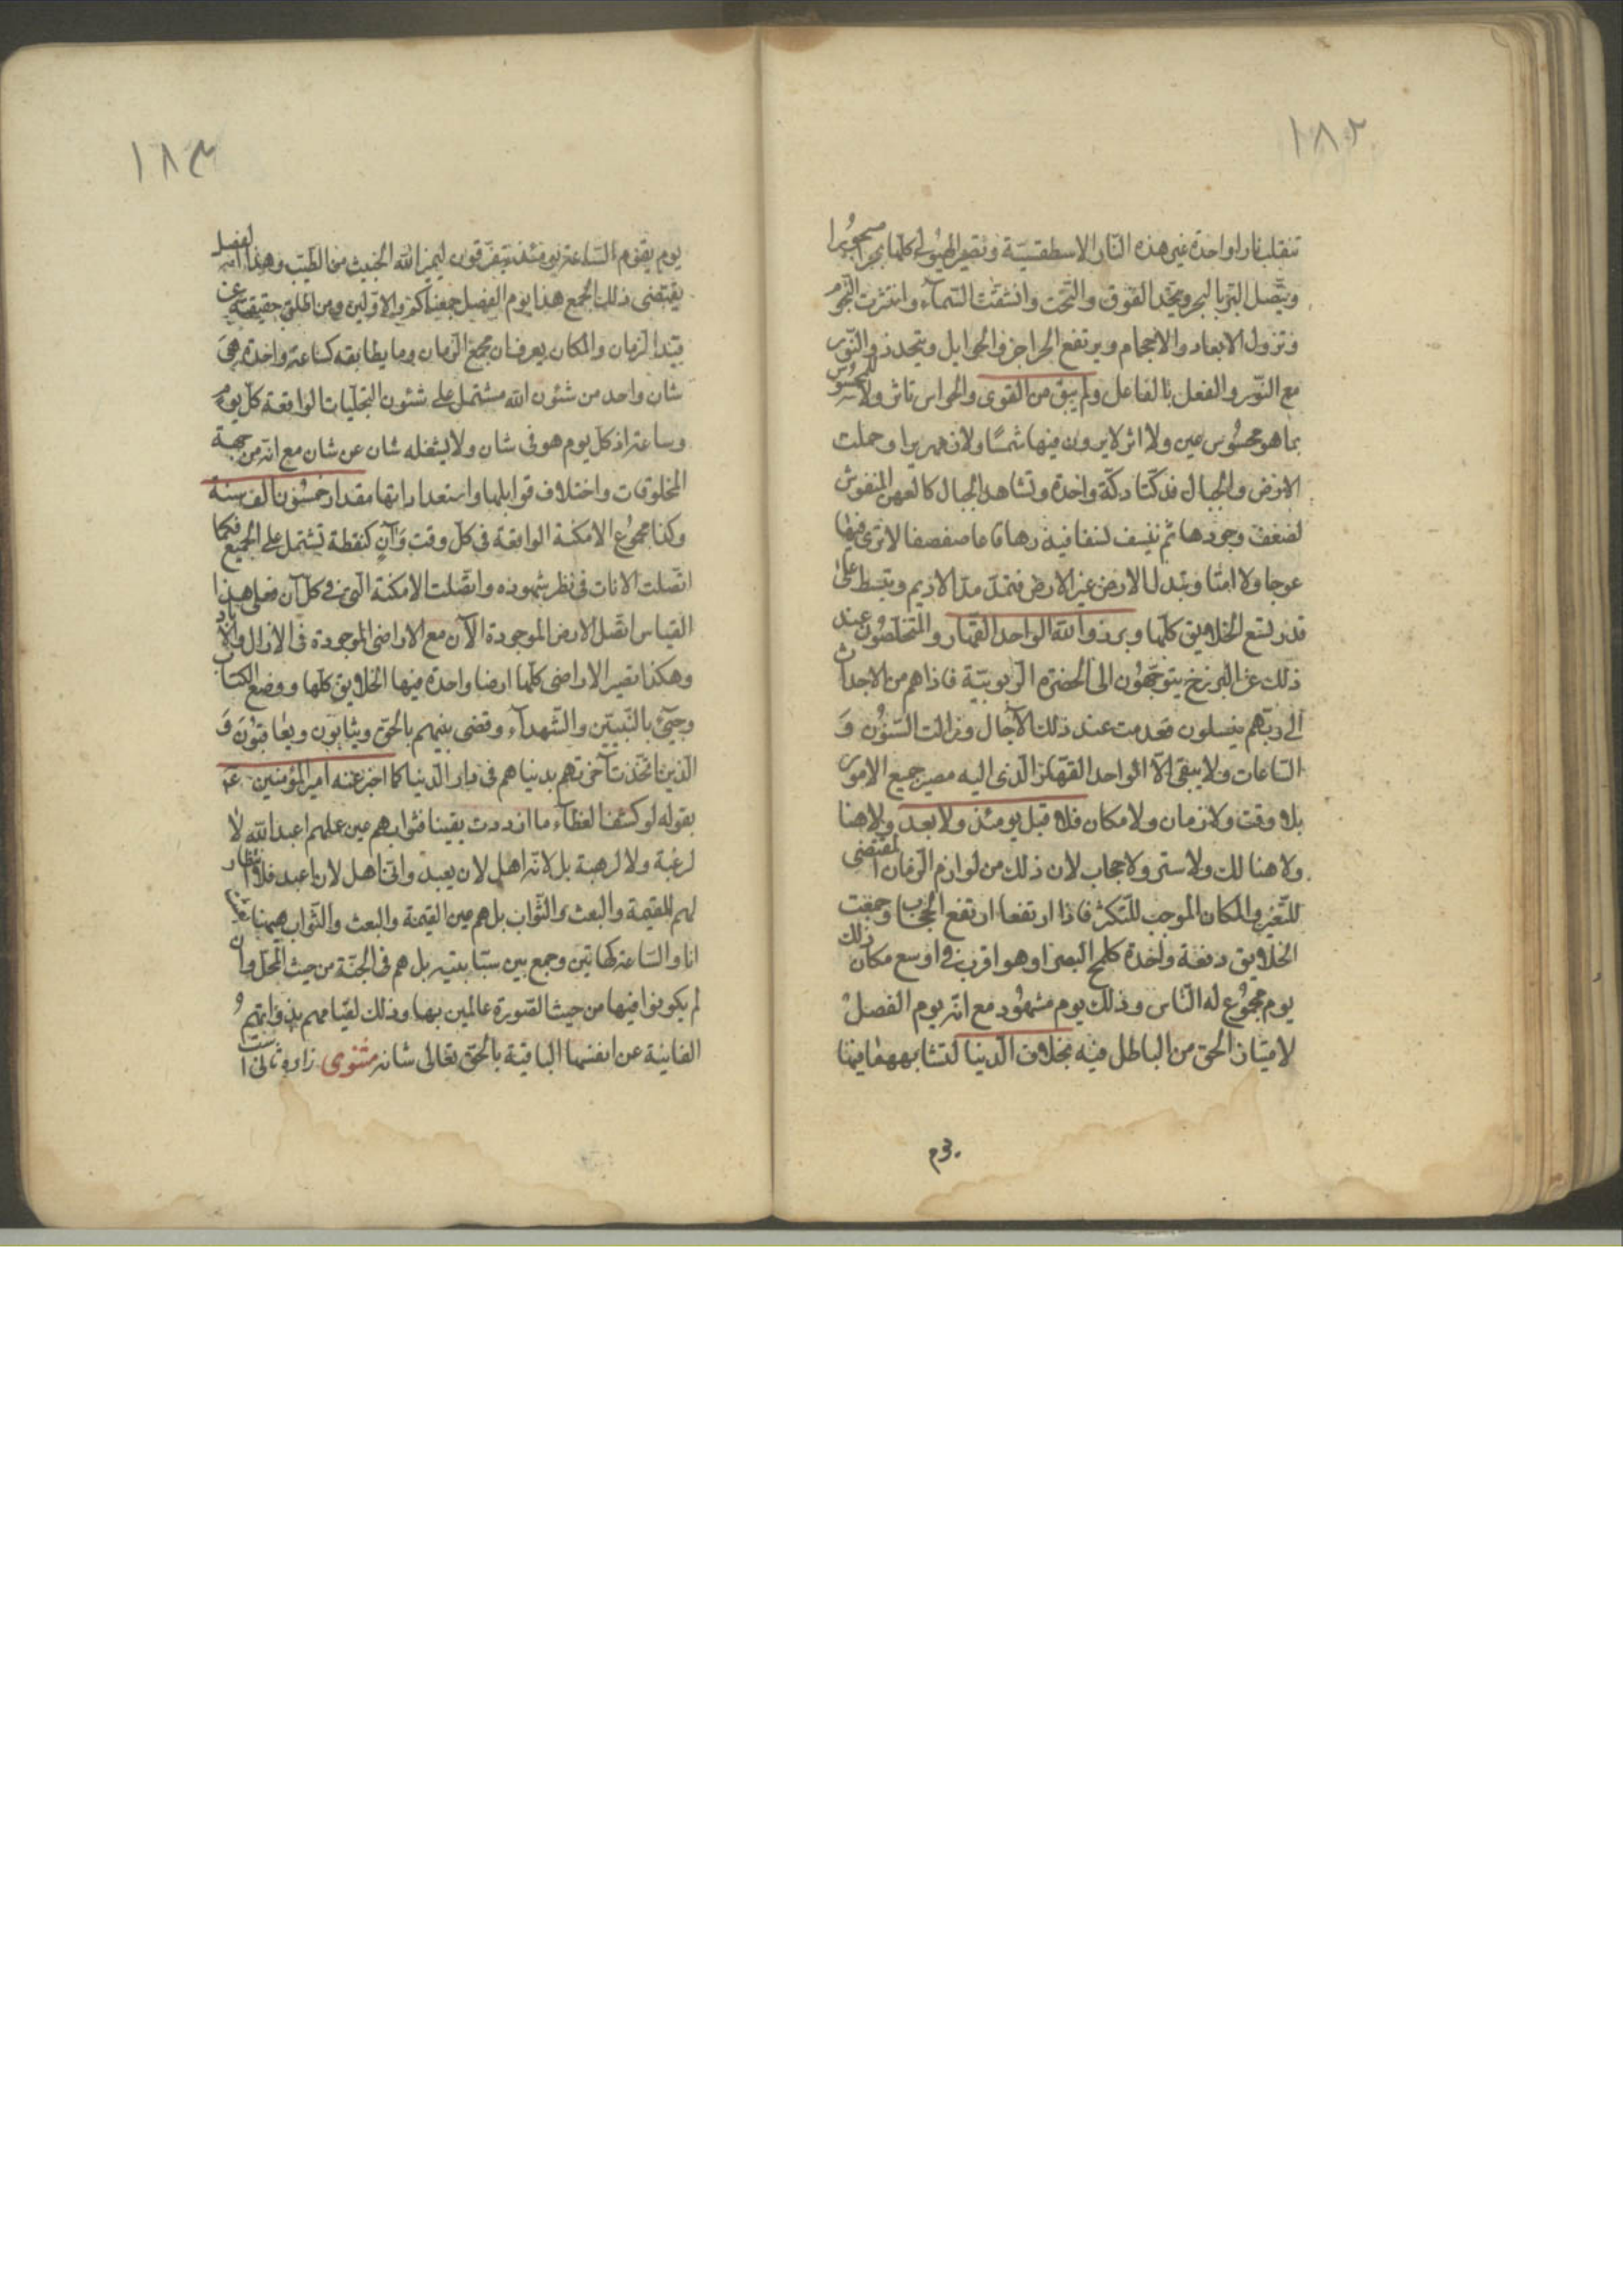 ١٨٢
تنقلب نارا واحدة غير هذه النار الاسطقسية وتصير الهيولى كلها بحرا مسجورا
ويتصل البر بالبحر ويتحد الفوق والتحت وانشقت السماء وانتثرت النجوم
وتزول الابعاد والاحجام ويرتفع الحواجز والحوايل ويتحد ذو النور
مع النور والفعل بالفاعل ولم يبق من القوى والحواس تاثر ولا للمحسوس
بما هو محسوس عين ولا اثر لا يرون فيها شمسا ولا زمهريرا وحملت
الارض والجبال فدكتا دكة واحدة وتشاهد الجبال كالعهن المنفوش
لضعف وجودها ثم ينسف نسفا فيذرها قاعا صفصفا لا ترى فيها
عوجا ولا امتا وتبدل الارض غير الارض فتمد مد الاديم وتبسط على
قدر تسع الخلايق كلها وبرزوا لله الواحد القهار والمتخلصون عند
ذلك عن البرزخ يتوجهون الى الحضرة الربوبية فاذا هم من الاجداث
الى ربهم ينسلون فعدمت عند ذلك الآجال وزالت السنون و
الساعات ولا يبقى الا الواحد القهار الذى اليه مصير جميع الامور
بلا وقت ولا زمان ولا مكان فلا قبل يومئذ ولا بعد ولا هنا
ولا هنالك ولا ستر ولا حجاب لان ذلك من لوازم الزمان المقتضى
للتغير والمكان الموجب للتكثر فاذا ارتفعا ارتفع الحجاب وجمعت
الخلايق دفعة واحدة كلمح البصر او هو اقرب فى اوسع مكان ذلك
يوم مجموع له الناس وذلك يوم مشهود مع انه يوم الفصل
لامتياز الحق من الباطل فيه بخلاف الدنيا لتشابههما فيها
١٨٣
يوم يقوم الساعة يومئذ يتفرقون ليميز الله الخبيث من الطيب وهذا الفصل
يقتضى ذلك الجمع هذا يوم الفصل جمعناكم والاولين ومن اطلق حقيقته عن
قيد الزمان والمكان يعرف ان مجمع الزمان وما يطابقه كساعة واحدة هى
شان واحد من شئون الله مشتمل على شئون التجليات الواقعة كل يوم
وساعة اذ كل يوم هو فى شان ولا يشغله شان عن شان مع انه من جهة
المخلوقات واختلاف قوابلها واستعداداتها مقدار خمسون الف سنة
وكذا مجموع الامكنة الواقعة فى كل وقت وآن كنقطة تشتمل على الجميع فكما
اتصلت الانات فى نظر شهوده واتصلت الامكنة التى فى كل آن فعلى هذا
القياس اتصل الارض الموجودة الآن مع الاراضى الموجودة فى الازال والآباد
وهكذا تصير الاراضى كلها ارضا واحدة فيها الخلايق كلها ووضع الكتاب
وجئ بالنبيين والشهداء وقضى بينهم بالحق ويثابون ويعاقبون و
الذين اتحدت آخرتهم بدنياهم فى دار الدنيا كما اخبر عنه امير المؤمنين ع
بقوله لو كشف الغطاء ما ازددت يقينا فثوابهم عين علمهم اعبد الله لا
لرغبة ولا لرهبة بل لانه اهل لان يعبد وانى اهل لان اعبد فلا انتظار
لهم للقيمة والبعث والثواب بل هم عين القيمة والبعث والثواب
انا والساعة كهاتين وجمع بين سبابتيه بل هم فى الجنة من حيث المحل وان
لم يكونوا فيها من حيث الصورة عالمين بها وذلك لقيامهم بذواتهم
الفانية عن انفسها الباقية بالحق تعالى شانه مثنوى زاده ثانى است